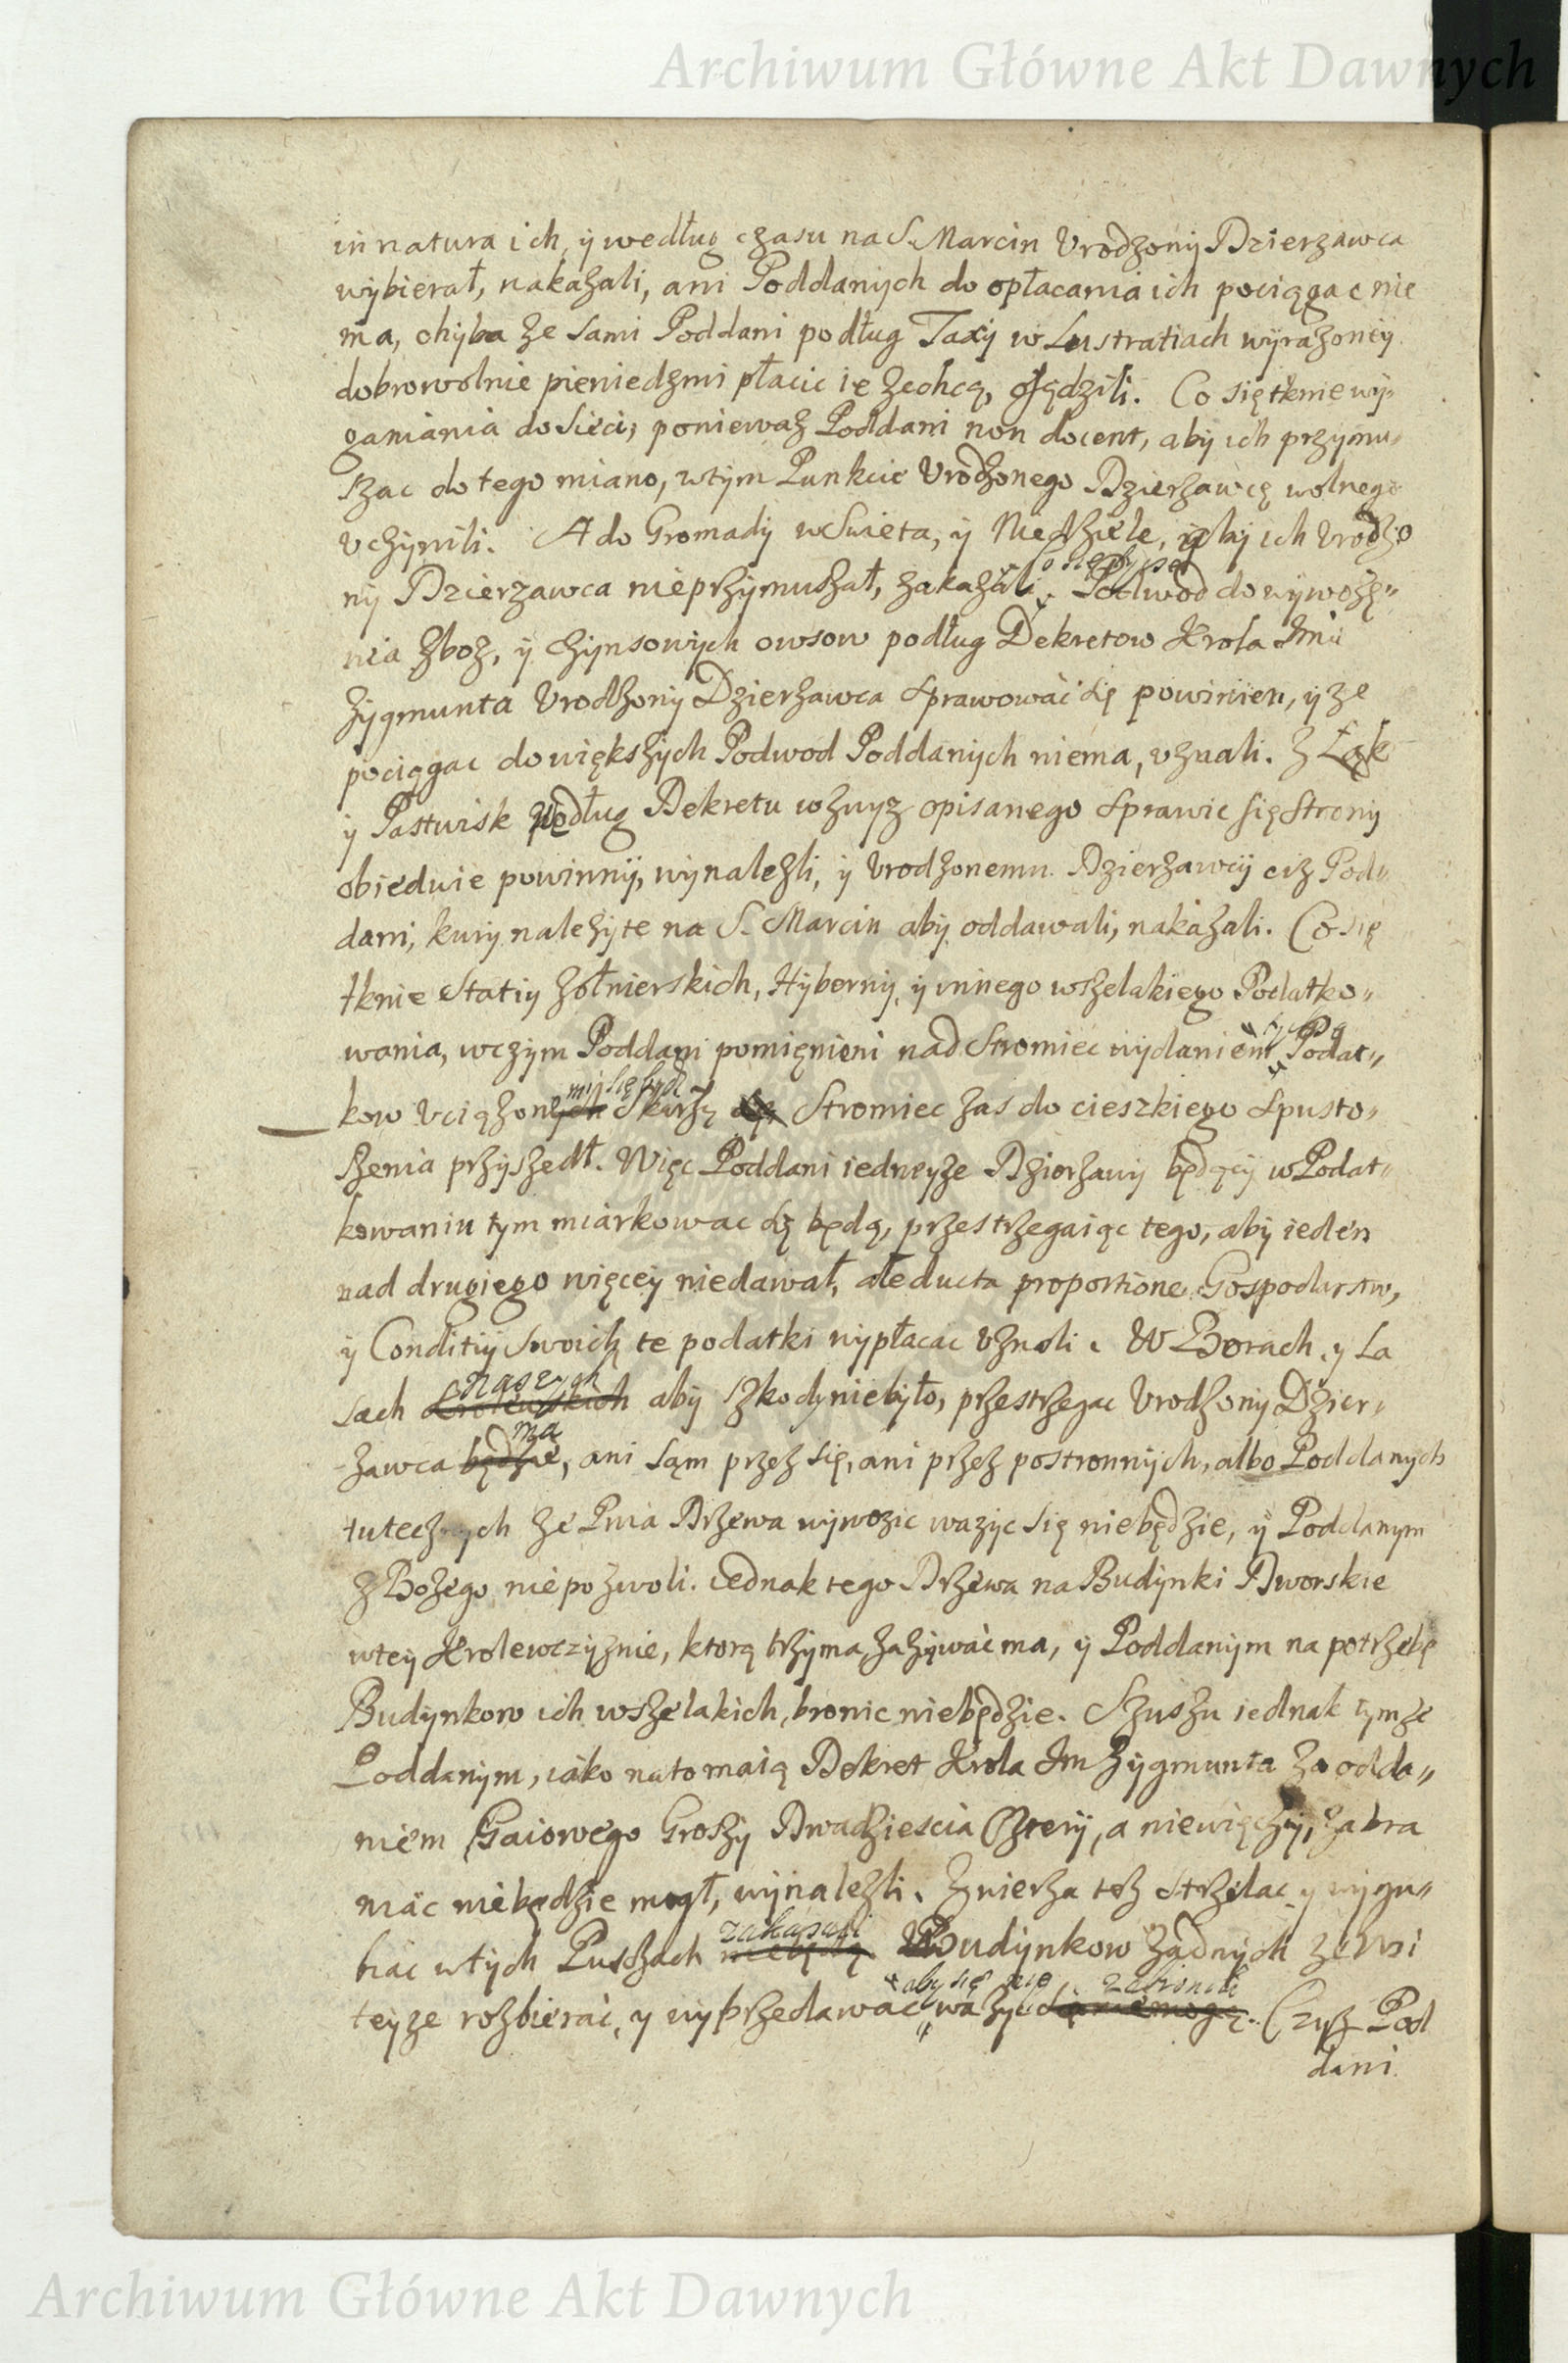 Archiwum Główne Akt Dawnych
in natura ich, y według czasu na S. Marcin Vrodzony Dzierzawca
wybierał, nakazali, ani Poddanych do opłacania ich pociągac nie
ma, chyba ze sami Poddani podług Taxy w Lustratiach wyrazoney
dobrowolnie pieniedzmi płacic ie zechcą, osądzili. Co się tknie wy„
ganiania do Sieci, poniewaz Poddani non docent, aby ich przymu„
szac do tego miano, wtym Punkcie Vrodzonego Dzierzawcę wolnego
vczynili. A do Gromady w Swieta, y Niedziele, izby ich Vrodzo
ny Dzierzawca nieprzymuszał, zakazali. Podwod do wywozę„
nia zboz, y czynsowych owsow podług Dekretow Krola Jmci
Zygmunta Vrodzony Dzierzawca sprawowac się powinien, y ze
pociągac do większych Podwod Poddanych niema, vznali. Z Łąk
y Pastwisk według Dekretu wzwyz opisanego sprawic się strony
obiedwie powinny, wynalezli, y Vrodzonemu Dzierzawcy ciz Pod„
dani, kury nalezyte na S. Marcin aby oddawali, nakazali. Co się
tknie Statiy zołnierskich, Hyberny, y innego wszelakiego Podatko„
wania, wczym Poddani pomięnieni nad Stromiec wydaniem Podat„
mi się bydź
kow vciązonych Skarzą się Stromiec zas do cieszkiego spusto„
szenia przyszedł. Więc Poddani iedneyze Dzierzawy będący w Podat„
kowaniu tym miarkowac się będą, przestrzegaiąc tego, aby ieden
nad drugiego więcey niedawał, ale ducta proportione Gospodarstw,
y Conditiy swoich te podatki wypłacac vznali. W Borach, y La
naszych
sach Krolewskich aby szkody niebyło, przestrzegac Vrodzony Dzier„
ma
zawca będzie, ani sąm przez się, ani przez postronnych, albo Poddanych
tutecznych ze Pnia Drzewa wywozic wazyc się niebędzie, y Poddanym
z Bozego niepozwoli. iednak tego Drzewa na Budynki Dworskie
wtey Krolewczyznie, ktorą trzyma, zazywac ma, y Poddanym na potrzebę
Budynkow ich wszelakich, bronic niebędzie. Szuszu iednak tymze
Poddanym, iako na to maią Dekret Krola Jm Zygmunta za odda„
niem Gaiowego Groszy Dwadziescia Cztery, a niewięczy, zabra
niac niebędzie mogł, wynalezli. Zwierza tez strzelac y wygu„
zakazali
biac wtych Puszczach niebędą Budynkow zadnych ze Wsi
aby się nie zabronili
teyze rozbierac, y wyprzedawac wazyc się niemogą. Czyz Pod
dani
Archiwum Główne Akt Dawnych